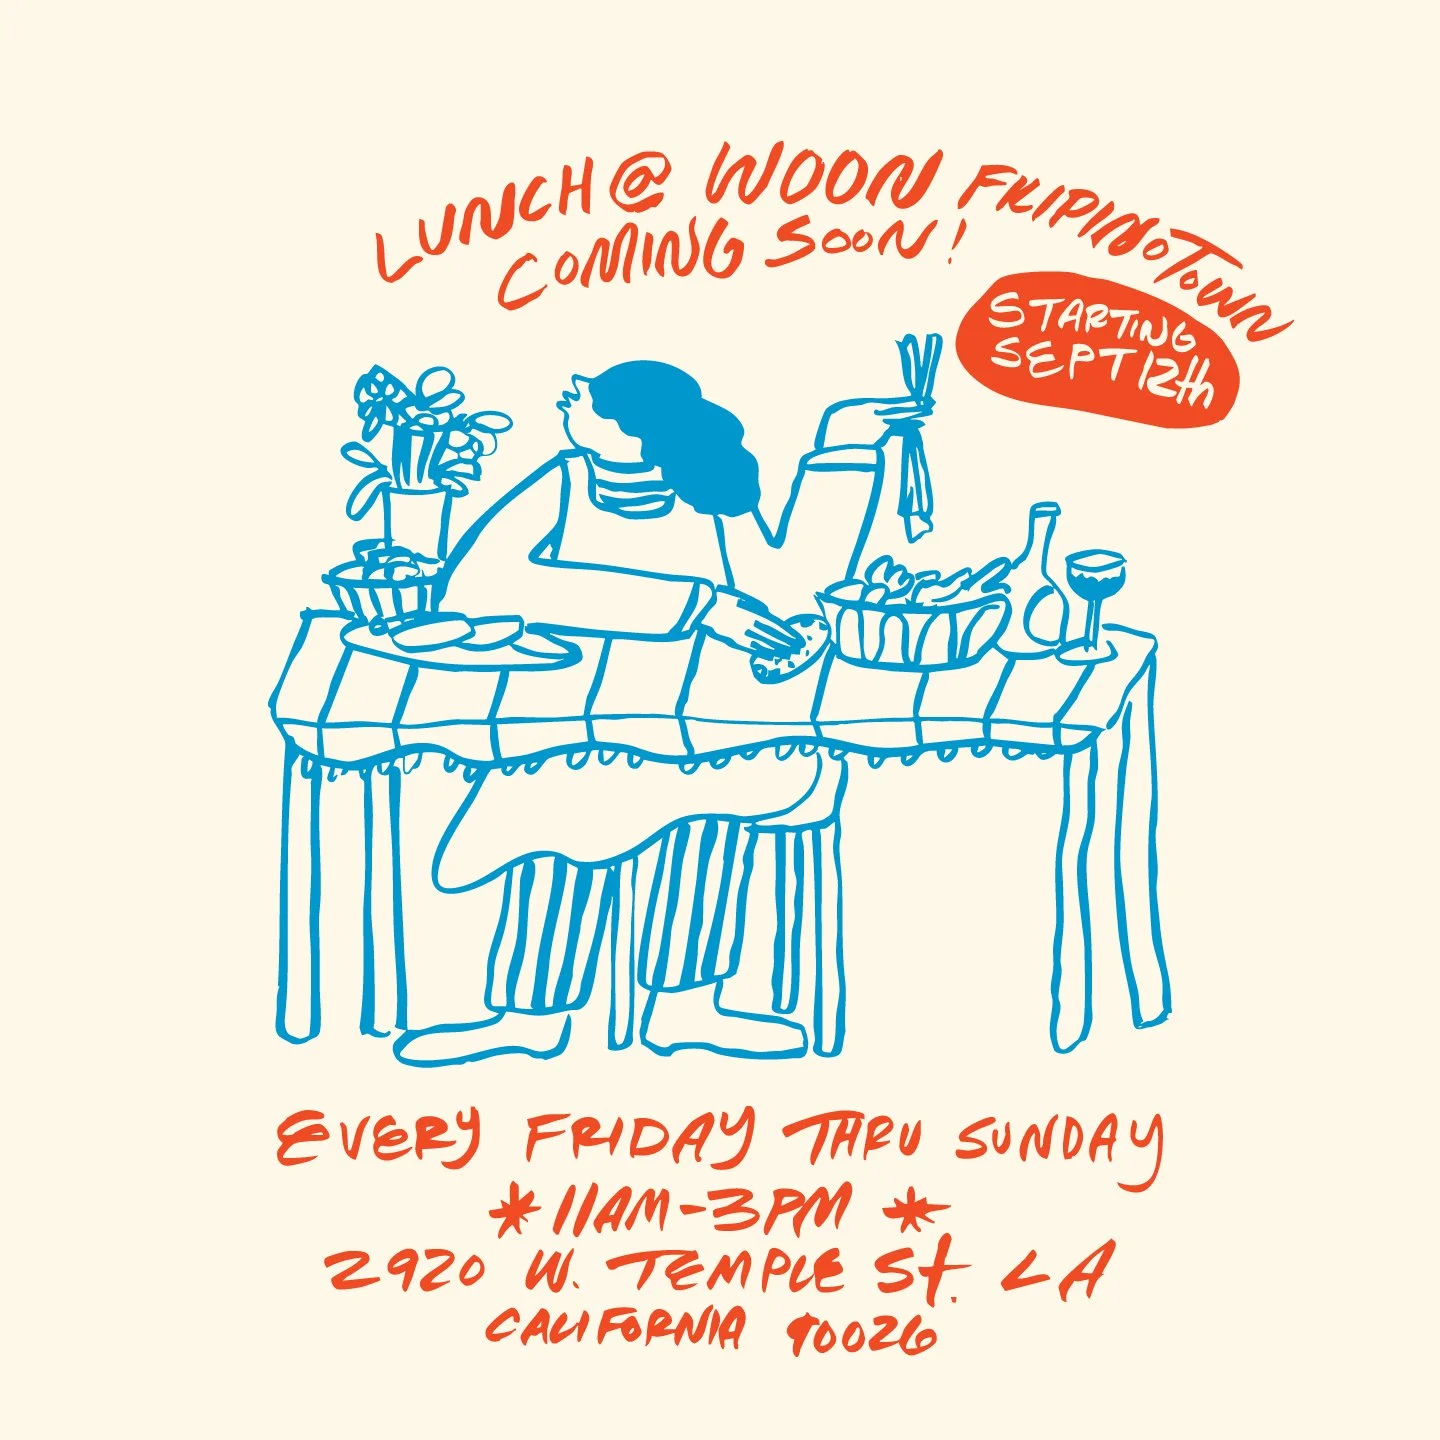 LUNCH @ WOON FILIPINOTOWN
COMING SOON!
STARTING
SEPT 12th
EVERY FRIDAY THRU SUNDAY
*11AM-3PM *
2920 W. TEMPLE St. LA
CALIFORNIA 90026